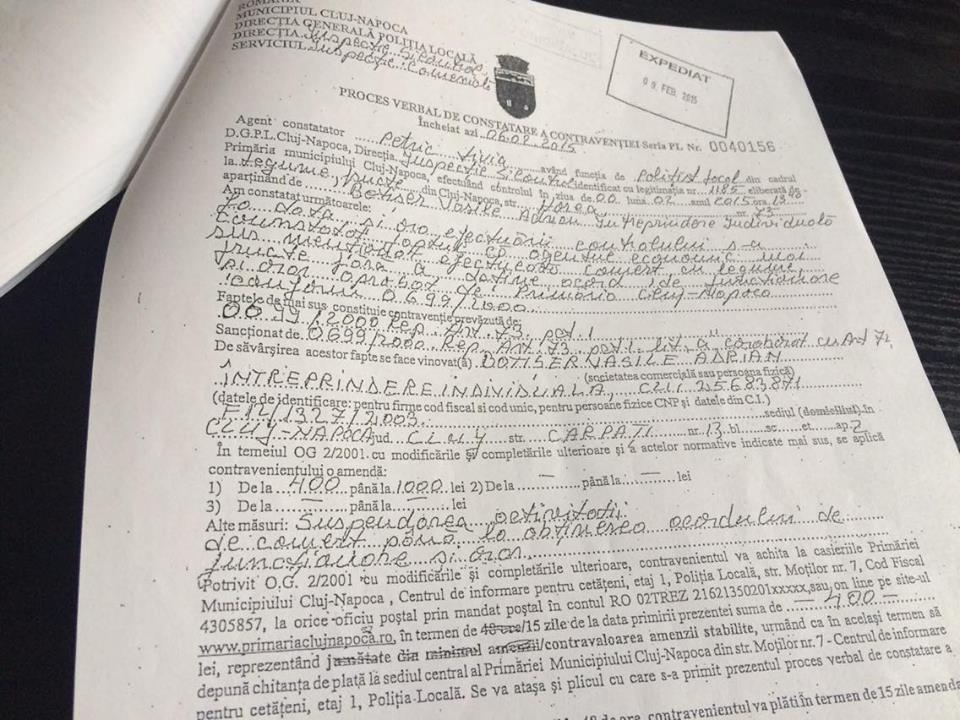 ROMÂNIA
MUNICIPIUL CLUJ-NAPOCA
DIRECȚIA GENERALĂ POLIȚIA LOCALĂ
DIRECȚIA Inspecție și control
SERVICIUL Inspecție Comercială
EXPEDIAT
09. FEB. 2015
PROCES VERBAL DE CONSTATARE A CONTRAVENȚIEI Seria PL Nr. 0040156
Încheiat azi 06.02.2015
Agent constatator Petric Livia având funcția de Polițist local din cadrul
D.G.P.L. Cluj-Napoca, Direcția Inspecție și control identificat cu legitimația nr. 1185 eliberată de
Primăria municipiului Cluj-Napoca, efectuând controlul în ziua de luna 02 anul 2015 ora 13
la legume, fructe din Cluj-Napoca, str. nr. 73
aparținând de Vasile Adrian Intreprindere Individuală
Am constatat următoarele:
La data și ora efectuării controlului s-a
constatat faptul că agentul economic mai
sus menționat efectuează comerț cu legume,
fructe fără a deține acord de funcționare
și orar aprobat de Primăria Cluj-Napoca
conform 0.699/2000.
Faptele de mai sus constituie contravenție prevăzută de:
0699/2000 Rep. Art. 73, pct. 1
Sancționat de 0699/2000 Rep. Art. 73 pct. 1 lit. a coroborat cu Art 74,
De săvârșirea acestor fapte se face vinovat(ă) BOTISER VASILE ADRIAN
(societatea comercială sau persoana fizică)
ÎNTREPRINDERE INDIVIDUALĂ, CUI 25683871
(datele de identificare: pentru firme cod fiscal si cod unic, pentru persoane fizice CNP și datele din C.I.)
F12/1327/2003. sediul (domiciliul) în
CLUJ-NAPOCA jud. CLUJ str. CARPAȚI nr. 13 bl. sc. et. ap. 2
În temeiul OG 2/2001 cu modificările și completările ulterioare și a actelor normative indicate mai sus, se aplică
contravenientului o amendă:
1) De la 400 până la 1000 lei 2) De la — până la — lei
3) De la — până la — lei
Alte măsuri: Suspendarea activității
de comerț până la obținerea acordului de
funcționare și orar.
Potrivit O.G. 2/2001 cu modificările și completările ulterioare, contravenientul va achita la casieriile Primăriei
Municipiului Cluj-Napoca, Centrul de informare pentru cetățeni, etaj 1, Poliția Locală, str. Moților nr. 7, Cod Fiscal
4305857, la orice oficiu poștal prin mandat poștal în contul RO 02TREZ 2162135020 1xxxxx, sau on line pe site-ul
www.primariaclujnapoca.ro, în termen de 48 ore/15 zile de la data primirii prezentei suma de — 400 —
lei, reprezentând jumătate din minimul amenzii/contravaloarea amenzii stabilite, urmând ca în același termen să
depună chitanța de plată la sediul central al Primăriei Municipiului Cluj-Napoca din str. Moților nr. 7 - Centrul de informare
pentru cetățeni, etaj 1, Poliția Locală. Se va atașa și plicul cu care s-a primit prezentul proces verbal de constatare a
48 de ore, contravenientul va plăti în termen de 15 zile amenda